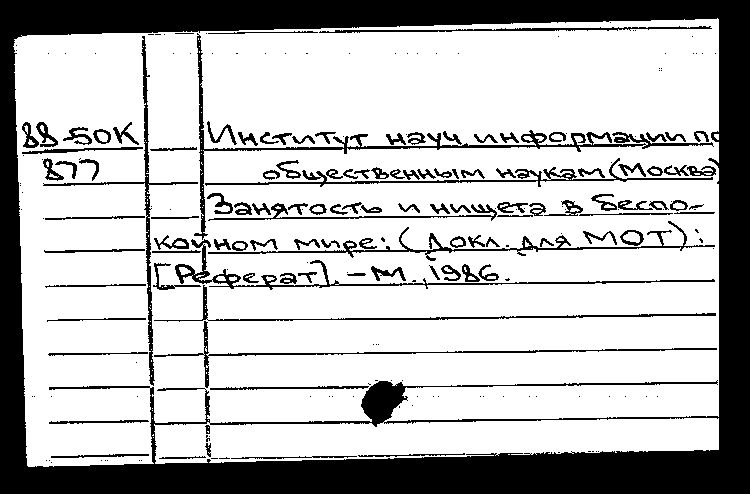 88-50К
877
Институт науч. информации по
общественным наукам (Москва)
Занятость и нищета в беспо-
койном мире: (Докл. для МОТ):
[Реферат]. - М., 1986.